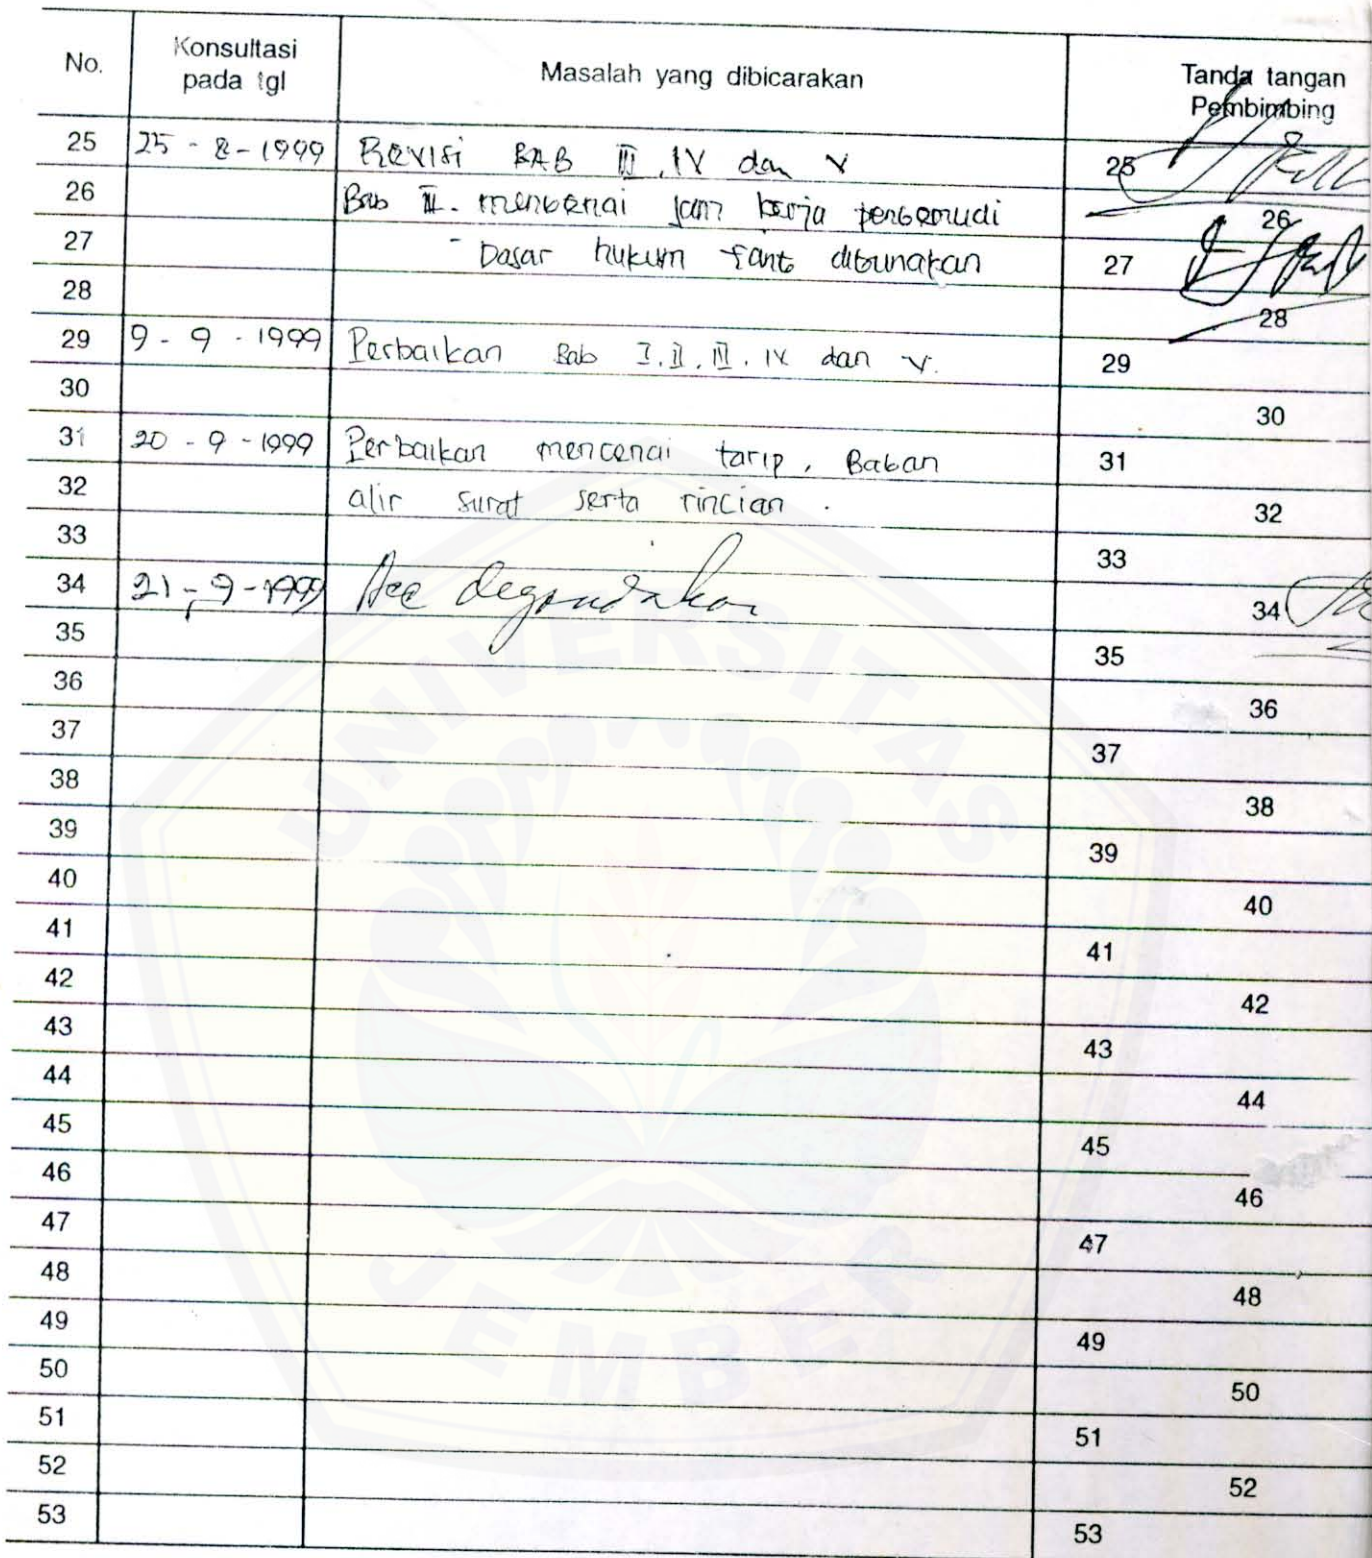 No. Konsultasi pada tgl Masalah yang dibicarakan Tanda tangan Pembimbing
25 25 - 8 - 1999 Revisi BAB III, IV dan V 25
26 Bab II. mengenai jam kerja pengemudi 26
27 - Dasar hukum yang digunakan 27
28 28
29 9 - 9 - 1999 Perbaikan Bab I, II, III, IV dan V. 29
30 30
31 20 - 9 - 1999 Perbaikan mengenai tarip, Bagan 31
32 alir surat serta rincian. 32
33 33
34 21 - 9 - 1999 Acc 34
35 35
36 36
37 37
38 38
39 39
40 40
41 41
42 42
43 43
44 44
45 45
46 46
47 47
48 48
49 49
50 50
51 51
52 52
53 53
UNIVERSITAS
JEMBER